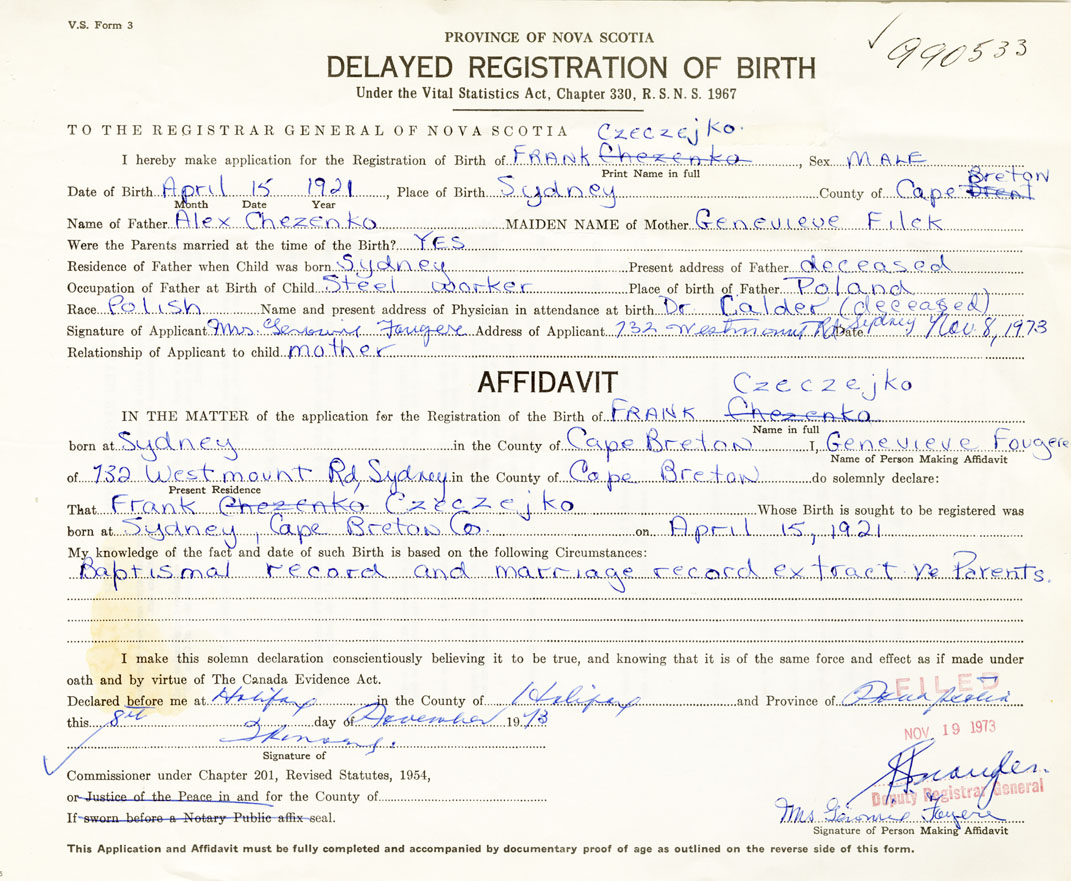 V.S. Form 3
990533
PROVINCE OF NOVA SCOTIA
DELAYED REGISTRATION OF BIRTH
Under the Vital Statistics Act, Chapter 330, R. S. N. S. 1967
TO THE REGISTRAR GENERAL OF NOVA SCOTIA Czeczejko.
I hereby make application for the Registration of Birth of FRANK Chezenko, Sex MALE
Print Name in full Breton
Date of Birth April 15 1921, Place of Birth Sydney County of Cape Brent
Month Date Year
Name of Father Alex Chezenko MAIDEN NAME of Mother Genevieve Filck
Were the Parents married at the time of the Birth? YES
Residence of Father when Child was born Sydney Present address of Father deceased
Occupation of Father at Birth of Child Steel worker Place of birth of Father Poland
Race Polish Name and present address of Physician in attendance at birth Dr. Calder (deceased)
Signature of Applicant Mrs. Fougere Address of Applicant 732 Westmount Rd Sydney Date Nov. 8, 1973
Relationship of Applicant to child mother
AFFIDAVIT Czeczejko
IN THE MATTER of the application for the Registration of the Birth of FRANK Chezenko
Name in full
born at Sydney in the County of Cape Breton I, Genevieve Fougere
Name of Person Making Affidavit
of 732 Westmount Rd, Sydney in the County of Cape Breton do solemnly declare:
Present Residence
That Frank Chezenko Czeczejko Whose Birth is sought to be registered was
born at Sydney, Cape Breton Co. on April 15, 1921
My knowledge of the fact and date of such Birth is based on the following Circumstances:
Baptismal record and marriage record extract re Parents.
I make this solemn declaration conscientiously believing it to be true, and knowing that it is of the same force and effect as if made under
oath and by virtue of The Canada Evidence Act.
FILED
Declared before me at Halifax in the County of Halifax and Province of Nova Scotia
this 8th day of November 1973
NOV 19 1973
Signature of
Commissioner under Chapter 201, Revised Statutes, 1954,
or Justice of the Peace in and for the County of
Deputy Registrar General
If sworn before a Notary Public affix seal.
Mrs
Signature of Person Making Affidavit
This Application and Affidavit must be fully completed and accompanied by documentary proof of age as outlined on the reverse side of this form.